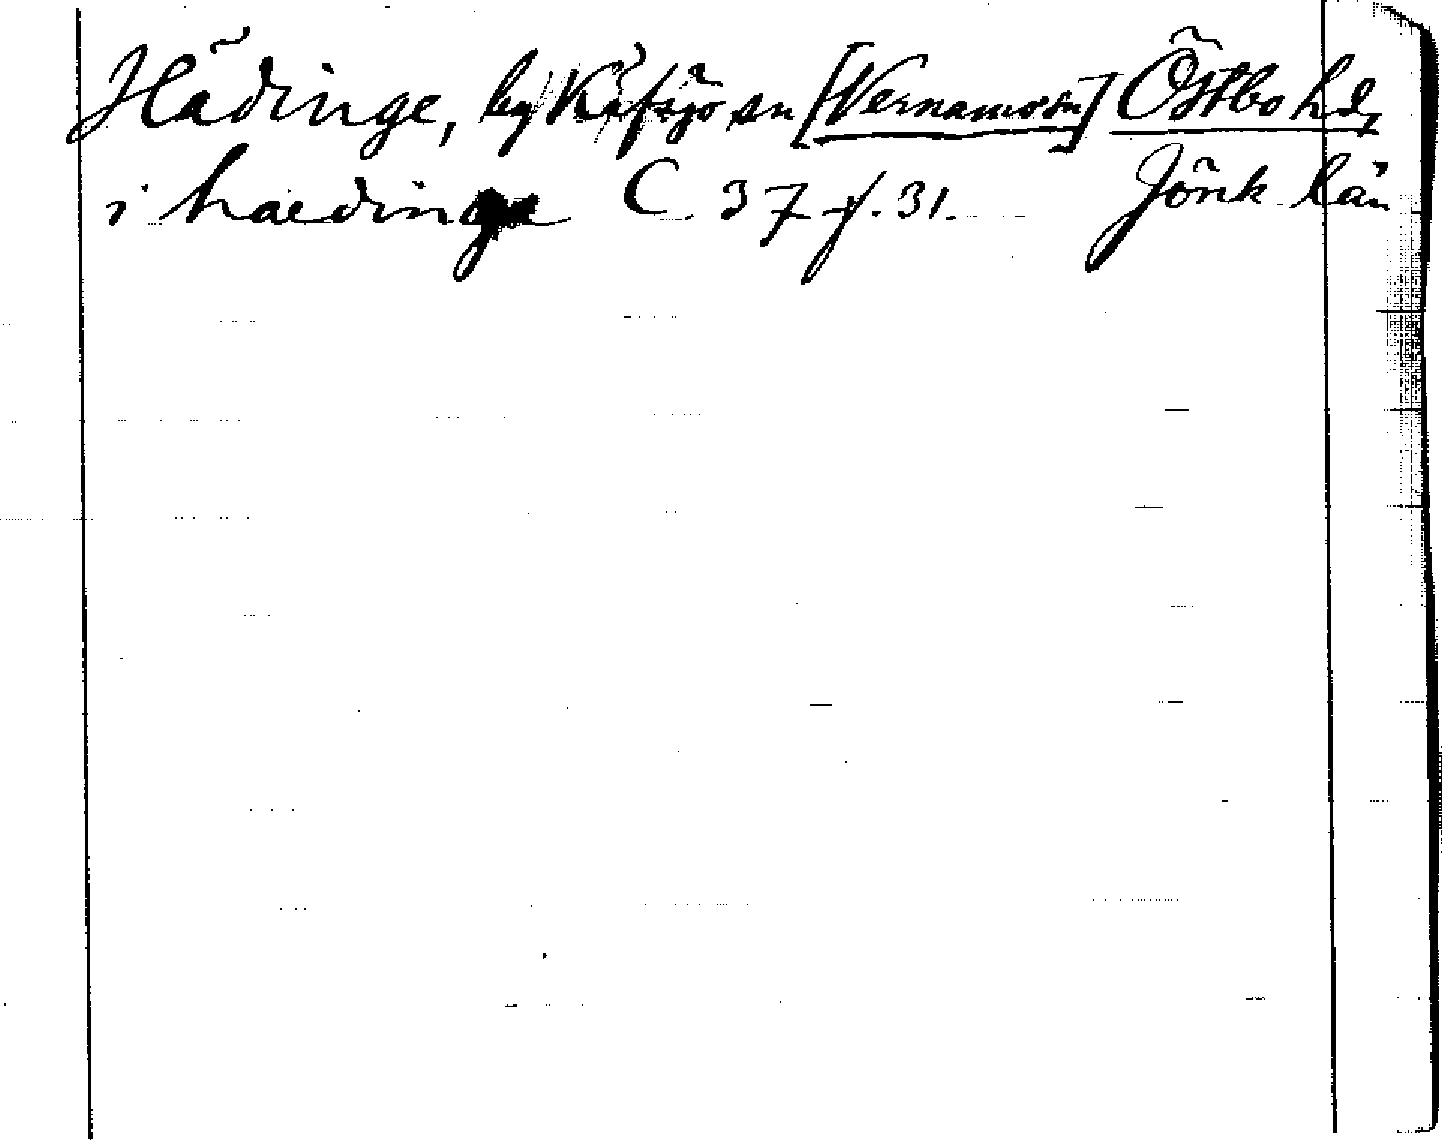 Hädinge, by Käfsjö sn [Vernamo sn] Östbo hd,
i haedinge C 37 f. 31. Jönk län